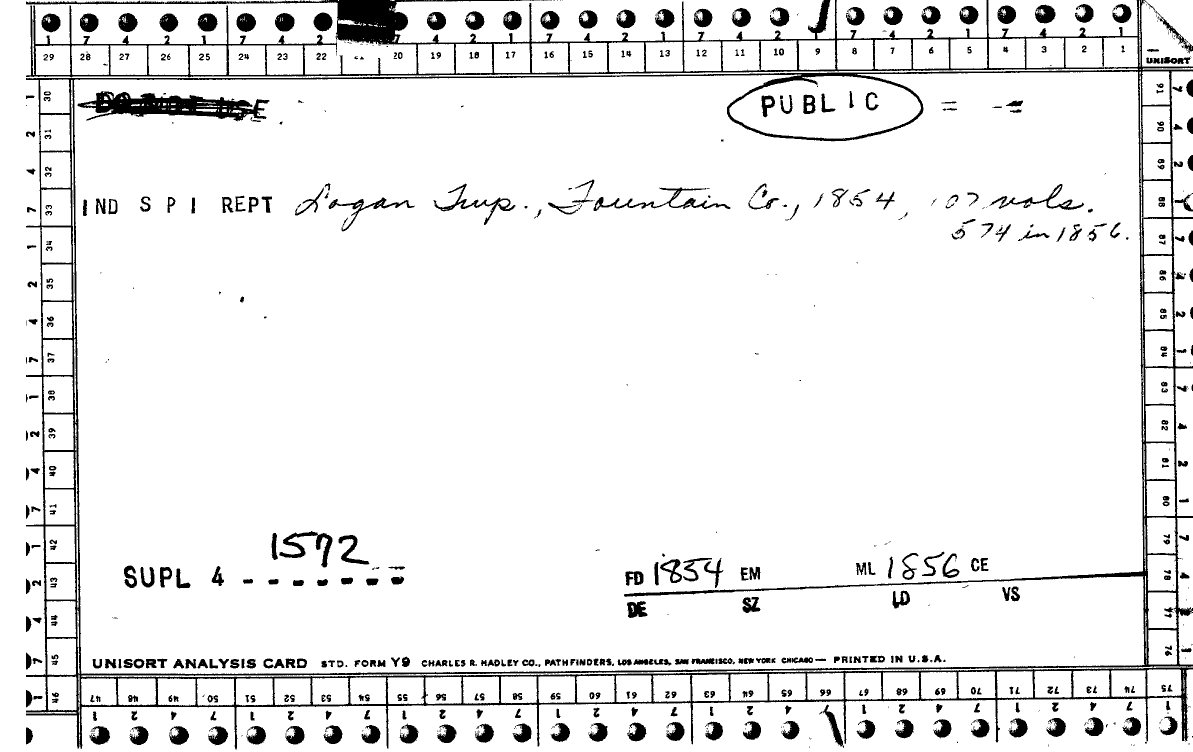 1 7 4 2 1 7 4 2 7 4 2 1 7 4 2 1 7 4 2 1 7 4 2 1 7 4 2 1
29 28 27 26 25 24 23 22 20 19 18 17 16 15 14 13 12 11 10 9 8 7 6 5 4 3 2 1
UNISORT
DO NOT USE
PUBLIC =
IND S P I REPT Logan Twp., Fountain Co., 1854, 107 vols.
574 in 1856.
1592
SUPL 4 - - - - - -
FD 1854 EM ML 1856 CE
DE SZ LD VS
UNISORT ANALYSIS CARD STD. FORM Y9 CHARLES R. HADLEY CO., PATHFINDERS, LOS ANGELES, SAN FRANCISCO, NEW YORK CHICAGO — PRINTED IN U.S.A.
30 31 32 33 34 35 36 37 38 39 40 41 42 43 44 45 46
47 48 49 50 51 52 53 54 55 56 57 58 59 60 61 62 63 64 65 66 67 68 69 70 71 72 73 74 75
76 77 78 79 80 81 82 83 84 85 86 87 88 89 90 91